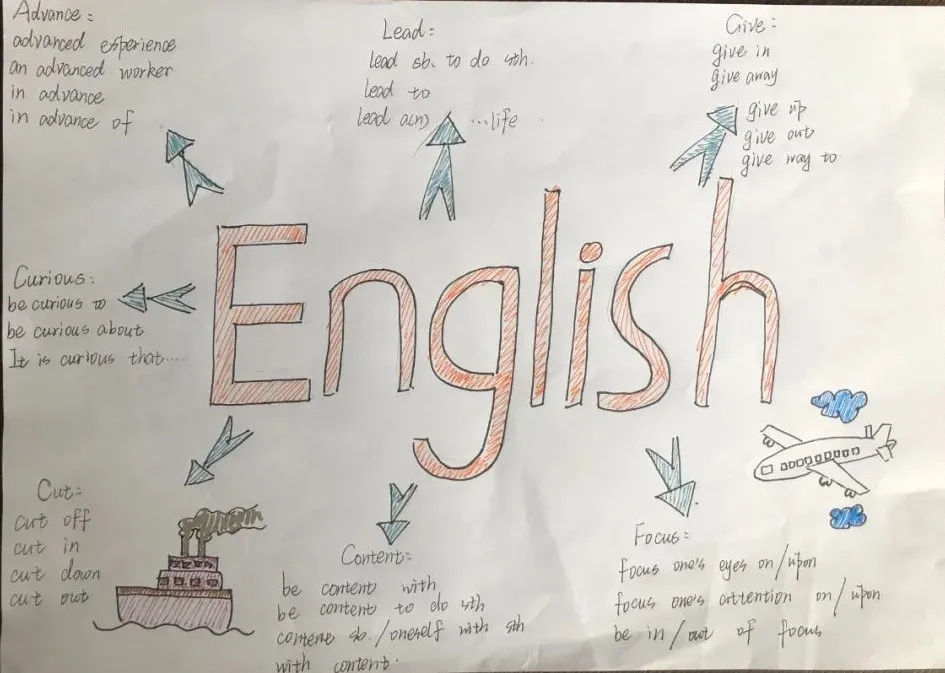 Advance:
advanced experience
an advanced worker
in advance
in advance of
Lead:
lead sb. to do sth.
lead to
lead a(n) ...life
Give:
give in
give away
give up
give out
give way to
Curious:
be curious to
be curious about
It is curious that...
English
Cut:
cut off
cut in
cut down
cut out
Content:
be content with
be content to do sth
content sb./oneself with sth
with content.
Focus:
focus one's eyes on/upon
focus one's attention on/upon
be in/out of focus